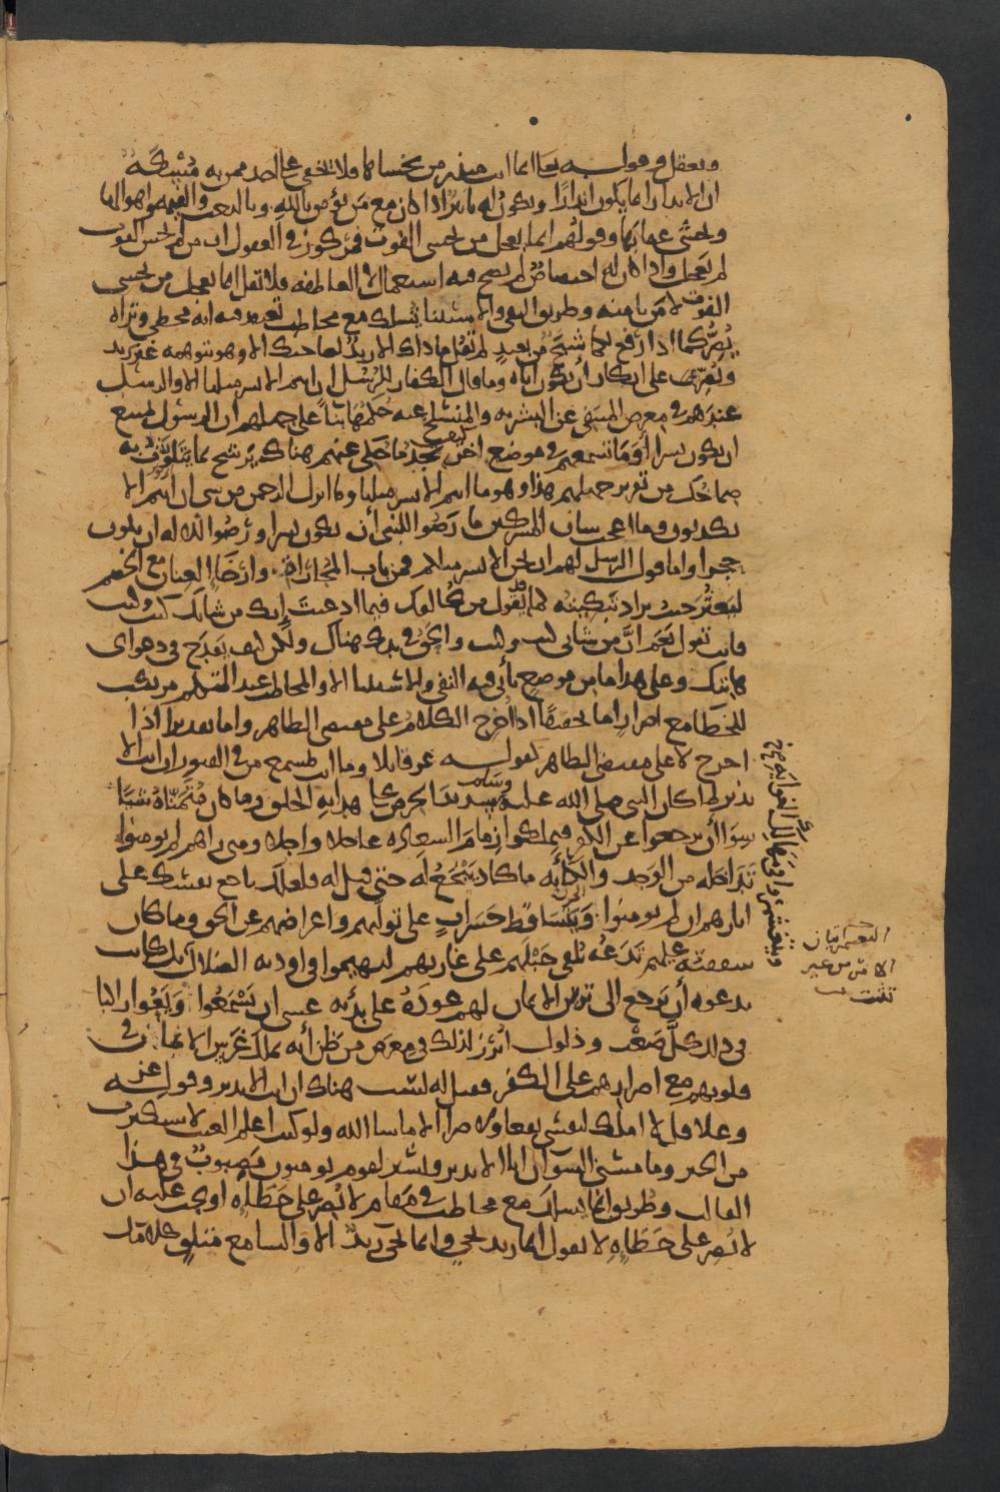 ويعقل وقوله تعالى انما انت منذر من يخشاها فلا تخفى على احد ممن به مُسكة
ان الانذار انما يكون انذارا ويكون له تأثير اذا كان مع من يؤمن بالله وبالبعث والقيمه واهوالها
ويخشى عقابها وقولهم انما يعجل من يخشى الفوت فمركوز في العقول ان من لم يخش الفوت
لم يعجل واذا كان له اختصاص لم يصح فيه استعمال لا العاطفه فلا تقل انما يعجل من يخشى
الفوت لا من يامنه وطريق النفي والاستثنا يُسلك مع مخاطب تعتقد فيه انه مخطي وتراه
يُصِرُّ كما اذا رُفع لكما شبح من بعيد لم تقل ما ذاك الا زيد لصاحبك الا وهو يتوهمه غير زيد
ويُصِرّ على انكار ان يكون اياه وما قال الكفار للرسل ان انتم الا بشر مثلنا الا والرسل
عندهم في معرض المنتفي عن البشريه والمنسلخ عنه حكمها بناً على جهلهم ان الرسول يمتنع
ان يكون بشرا أو ما تسمعهم في موضع اخر كيف تجد ما حكى عنهم هناك يرشح بما يتلوث به
صماخك من تقرير جهلهم هذا وهو ما انتم الا بشر مثلنا وما انزل الرحمن من شي ان انتم الا
تكذبون وما اعجب شان المشركين ما رضوا للنبي أن يكون بشرا ورضوا للاله ان يكون
حجرا واما قول الرسل لهم ان نحن الا بشر مثلكم فمن باب المجاراة وارخاء العنان مع الخصم
ليعثُر حيث يراد تبكيته كما قد يقول من يخالفك فيما ادعيت إنك من شانك كيت وكيت
فانت تقول نعم انَّ من شاني كيت وكيت والحق في يدك هناك ولكن كيف يقدح في دعواى
هاتيك وعلى هذا ما من موضع يأتي فيه النفي والاستثنا الا والمخاطب عند المتكلم مرتكب
للخطا مع اصرار اما تحقيقا اذا اخرج الكلام على مقتضى الظاهر واما تقديرا اذا
اخرج لا على مقتضى الظاهر كقوله عز قايلا وما انت بمسمع من في القبور ان انت الا
نذير لما كان النبي صلى الله عليه وسلم شديد الحرص على هداية الخلق وما كان مُتمنّاهُ شيئا
سوا أن يرجعوا عن الكفر فيملكوا زمام السعاده عاجلا واجلا ومتى راهم لم يومنوا
تداخله من الوجد والكآبه ما كاد يَبْخَعُ له حتى قيل له فلعلك باخع نفسك على
اثارهم ان لم يومنوا وَيتسَاقط حَسَراتٍ على توليهم واعراضهم عن الحق وما كان
شفقته عليهم تَدَعُه يُلقي حَبْلَهم على غاربهم ليهيموا في اوديه الضلال بل كانت
تدعوه أن يَرجع الى تزيين الايمان لهم عودَهُ على بدئه عسى ان يَسْمَعُوا وَيَعُوا راكبا
في ذلك كلَّ صَعْب وذلول اُبْرِزَ لذلك في معرض من ظن أنه يملك غَرس الايمان في
قلوبهم مع اصرارهم على الكفر فقيل له لست هناك ان انت الا نذير وقوله عز
وعلا قل لا املك لنفسي نفعا ولا ضرا الا ما شا الله ولو كنت اعلم الغيب لاستكثرت
من الخير وما مسني السوّ ان انا الا نذير وبشير لقوم يومنون مَصبوبٌ في هذا
القالب وطريق انما يسلك مع مخاطب في مقام لا يُصِر على خَطَاه او يجب عليه ان
لا يُصِر على خَطَاهِ لا تقول انما زيد يجي وانما يجي زيدٌ الا والسامع متلقٍ كلامك
ويتغشمرُ واوى مهالك الغوايه صح
التغشمر اتيان
الامر من غير
تثبت